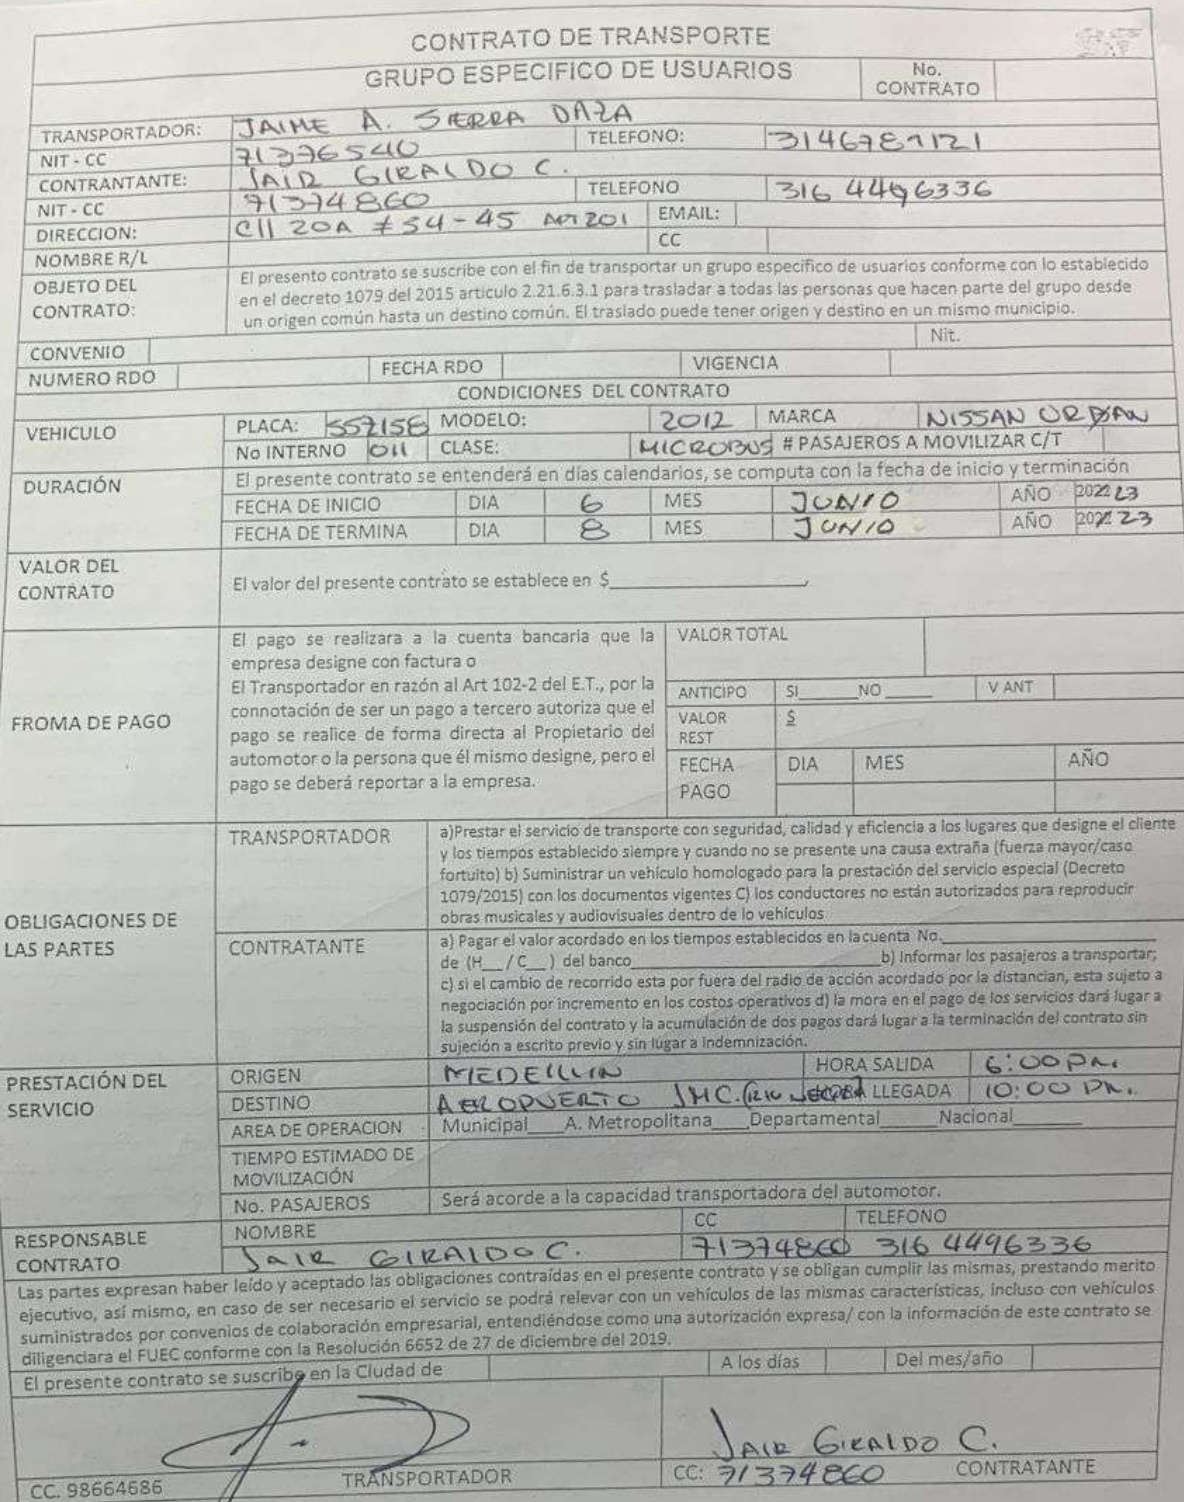 CONTRATO DE TRANSPORTE
GRUPO ESPECIFICO DE USUARIOS No. CONTRATO
TRANSPORTADOR: JAIME A. SIERRA DAZA
NIT - CC 71376540 TELEFONO: 3146789121
CONTRANTANTE: JAIR GIRALDO C.
NIT - CC 71374860 TELEFONO 316 4496336
DIRECCION: Cll 20A # 54-45 APT 201 EMAIL:
NOMBRE R/L CC
OBJETO DEL CONTRATO: El presento contrato se suscribe con el fin de transportar un grupo especifico de usuarios conforme con lo establecido
en el decreto 1079 del 2015 articulo 2.21.6.3.1 para trasladar a todas las personas que hacen parte del grupo desde
un origen común hasta un destino común. El traslado puede tener origen y destino en un mismo municipio.
CONVENIO Nit.
NUMERO RDO FECHA RDO VIGENCIA
CONDICIONES DEL CONTRATO
VEHICULO PLACA: 557158 MODELO: 2012 MARCA NISSAN URBAN
No INTERNO 011 CLASE: MICROBUS # PASAJEROS A MOVILIZAR C/T
DURACIÓN El presente contrato se entenderá en días calendarios, se computa con la fecha de inicio y terminación
FECHA DE INICIO DIA 6 MES JUNIO AÑO 2023
FECHA DE TERMINA DIA 8 MES JUNIO AÑO 2023
VALOR DEL CONTRATO El valor del presente contrato se establece en $
FROMA DE PAGO El pago se realizara a la cuenta bancaria que la
empresa designe con factura o
El Transportador en razón al Art 102-2 del E.T., por la
connotación de ser un pago a tercero autoriza que el
pago se realice de forma directa al Propietario del
automotor o la persona que él mismo designe, pero el
pago se deberá reportar a la empresa.
VALOR TOTAL
ANTICIPO SI____NO____ V ANT
VALOR REST $
FECHA PAGO DIA MES AÑO
OBLIGACIONES DE LAS PARTES
TRANSPORTADOR a)Prestar el servicio de transporte con seguridad, calidad y eficiencia a los lugares que designe el cliente
y los tiempos establecido siempre y cuando no se presente una causa extraña (fuerza mayor/caso
fortuito) b) Suministrar un vehículo homologado para la prestación del servicio especial (Decreto
1079/2015) con los documentos vigentes C) los conductores no están autorizados para reproducir
obras musicales y audiovisuales dentro de lo vehículos
CONTRATANTE a) Pagar el valor acordado en los tiempos establecidos en la cuenta No.
de (H__ / C__ ) del banco____ b) Informar los pasajeros a transportar;
c) si el cambio de recorrido esta por fuera del radio de acción acordado por la distancian, esta sujeto a
negociación por incremento en los costos operativos d) la mora en el pago de los servicios dará lugar a
la suspensión del contrato y la acumulación de dos pagos dará lugar a la terminación del contrato sin
sujeción a escrito previo y sin lugar a indemnización.
PRESTACIÓN DEL SERVICIO
ORIGEN MEDELLIN HORA SALIDA 6:00 PM.
DESTINO AEROPUERTO JMC. LLEGADA 10:00 PM.
AREA DE OPERACION Municipal____A. Metropolitana____Departamental____Nacional____
TIEMPO ESTIMADO DE MOVILIZACIÓN
No. PASAJEROS Será acorde a la capacidad transportadora del automotor.
RESPONSABLE CONTRATO NOMBRE CC TELEFONO
JAIR GIRALDO C. 71374860 316 4496336
Las partes expresan haber leído y aceptado las obligaciones contraídas en el presente contrato y se obligan cumplir las mismas, prestando merito
ejecutivo, así mismo, en caso de ser necesario el servicio se podrá relevar con un vehículos de las mismas características, incluso con vehículos
suministrados por convenios de colaboración empresarial, entendiéndose como una autorización expresa/ con la información de este contrato se
diligenciara el FUEC conforme con la Resolución 6652 de 27 de diciembre del 2019.
El presente contrato se suscribe en la Ciudad de A los días Del mes/año
JAIR GIRALDO C.
CC. 98664686 TRANSPORTADOR CC: 71374860 CONTRATANTE